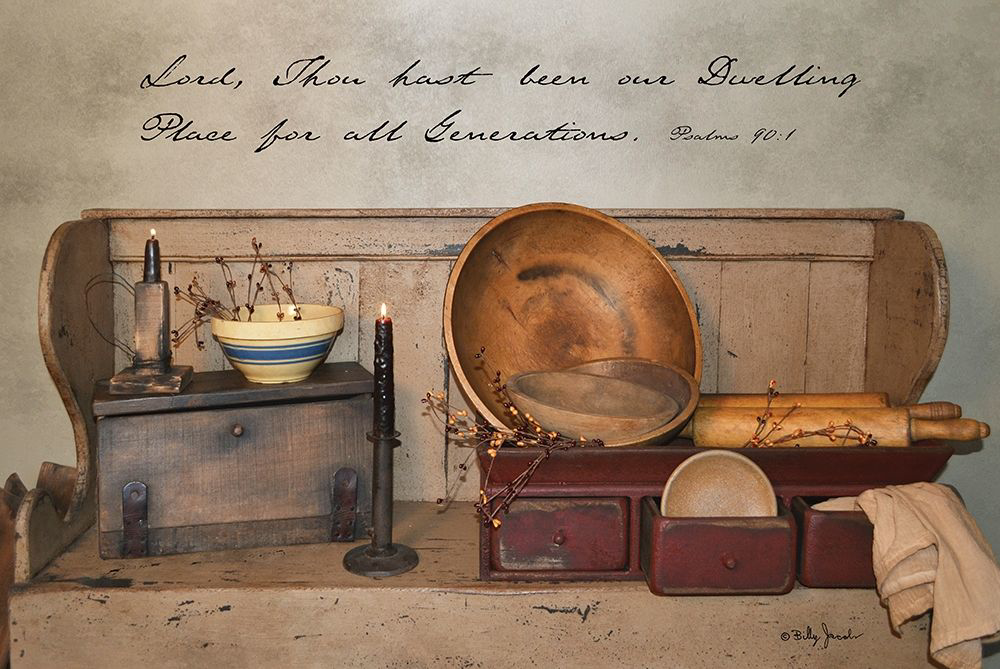 Lord, Thou hast been our Dwelling
Place for all Generations. Psalms 90:1
© Billy Jacobs